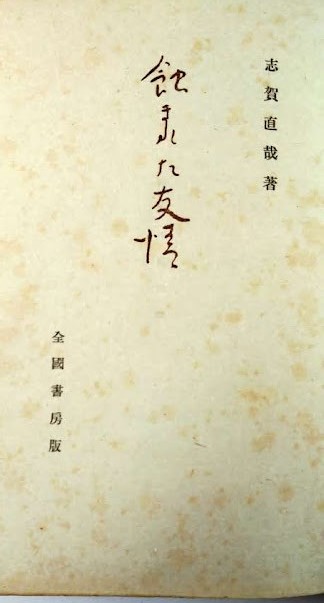 志賀直哉著
蝕まれた友情
全國書房版